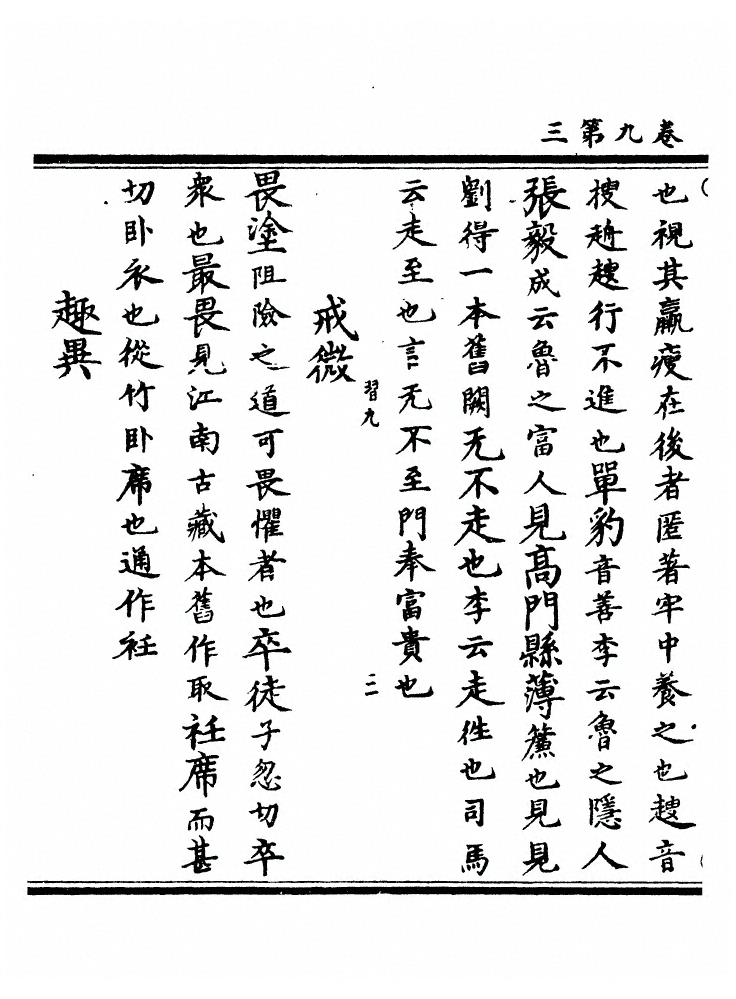 卷九第三
也視其羸瘦在後者匿著牢中養之也䞭音
搜䞤䞭行不進也單豹音善李云魯之隱人
張毅成云魯之富人見高門縣薄簾也見見
劉得一本舊闕无不走也李云走徃也司馬
云走至也言无不至門奉富貴也
習九
二
戒微
畏塗阻險之道可畏懼者也卒徒子忽切卒
衆也最畏見江南古藏本舊作取衽席而甚
切卧衣也從竹卧席也通作衽
趣異